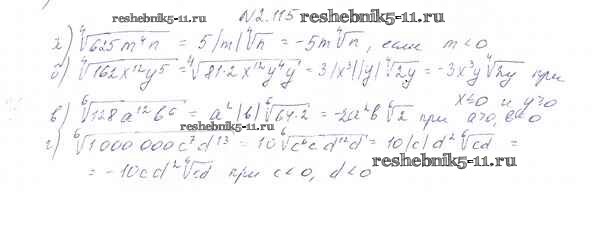 N2.115 reshebnik5-11.ru
а) ∜625m⁴n = 5|m|∜n = -5m∜n, если m<0
reshebnik5-11.ru
б) ∜162x¹²y⁵ = ∜81·2x¹²y⁴y = 3|x³||y|∜2y = -3x³y∜2y при
x≤0 и y≥0
в) ⁶√128a¹²b⁶ = a²|b|⁶√64·2 = -2a²b⁶√2 при a>0, b<0
reshebnik5-11.ru
г) ⁶√1000000c⁷d¹³ = 10⁶√c⁶cd¹²d = 10|c|d²⁶√cd =
reshebnik5-11.ru
= -10cd²⁶√cd при c<0, d<0